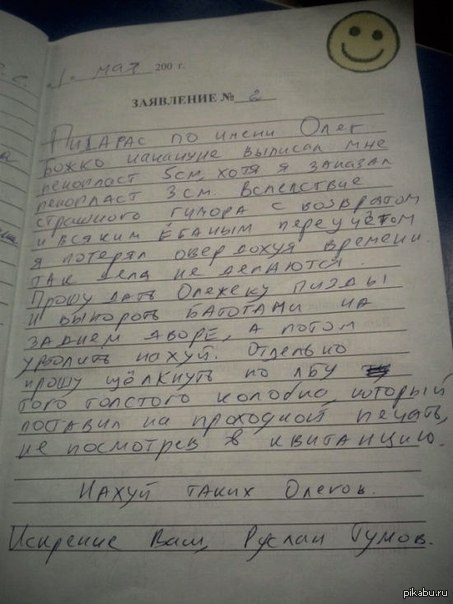 1. мая 200 г.
ЗАЯВЛЕНИЕ № 2
Пидарас по имени Олег
Божко накануне выписал мне
пенопласт 5см, хотя я заказал
пенопласт 3 см. Вследствие
страшного гимора с возвратом
и всяким ёбаным переучётом
я потерял овердохуя времени.
так дела не делаются
Прошу дать Олежеку пизды
и выпороть батогами на
заднем дворе, а потом
уволить нахуй. Отдельно
прошу щёлкнуть по лбу
того толстого колобка, который
поставил на проходной печать,
не посмотрев в квитанцию.
Нахуй таких Олегов.
Искрение Ваш, Руслан Гумов.
pikabu.ru